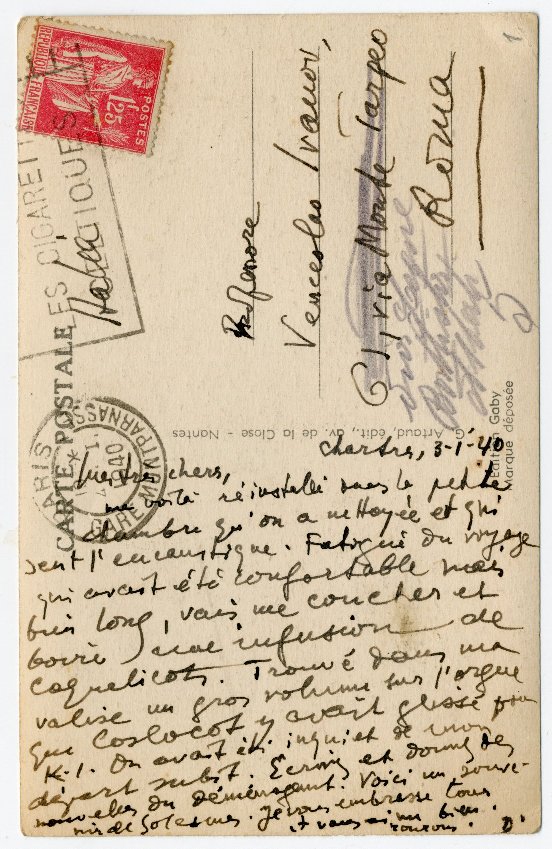 RÉPUBLIQUE FRANÇAISE
POSTES
1F25
ES CIGARETT
Italie
CARTE POSTALE
PARIS
GARE MONTPARNASSE
1940
Professore
Venceslao Ivanov,
via Monte Tarpeo
Roma
G. Artaud, édit., av. de la Close - Nantes
Edition Gaby
Marque déposée
Chartres, 3-1-40
Mes très chers,
me voilà réinstallé dans la petite
chambre qu'on a nettoyée et qui
sent l'encaustique. Fatigué du voyage
qui avait été confortable mais
bien long, vais me coucher et
boire une infusion de
coquelicots. Trouvé dans ma
valise un gros volume sur l'orgue
que Coslocot y avait glissé pour
K.I. On avait été inquiet de mon
départ subit. Écrivez et donnez des
nouvelles du déménagement. Voici un souve-
nir de Solesmes. Je vous embrasse tous
et vous aime bien.